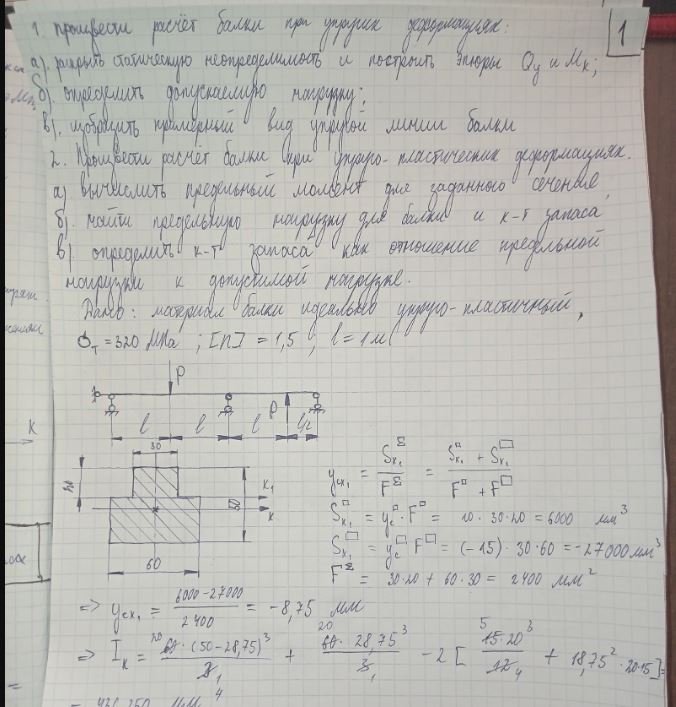 1
1. произвести расчёт балки при упругих деформациях:
а). раскрыть статическую неопределимость и построить эпюры Qy и Mк;
б). определить допускаемую нагрузку;
в). изобразить примерный вид упругой линии балки
2. Произвести расчёт балки при упруго-пластических деформациях.
а) вычислить предельный момент для заданного сечения,
б). найти предельную нагрузку для балки и к-т запаса
в). определить к-т запаса как отношение предельной
нагрузки к допустимой нагрузке.
Дано: материал балки идеально упруго-пластичный,
σт = 320 МПа ; [n] = 1,5 ; l = 1 м
P
P
l l l l/2
30
20 50
K1
K
60
yск1 = Sк1^Σ / F^Σ = (Sк1^□ + Sк1^□) / (F^□ + F^□)
Sк1^□ = yc^□ · F^□ = 10 · 30·20 = 6000 мм³
Sк1^□ = yc^□ · F^□ = (-15) · 30·60 = -27000 мм³
F^Σ = 30·20 + 60·30 = 2400 мм²
=> yск1 = (6000 - 27000) / 2400 = -8,75 мм
=> Iк = 20 60·(50-28,75)³ / 3 1 + 20 60·28,75³ / 3 1 - 2 [ 5 15·20³ / 12 4 + 18,75²·20·15 ] =
мм⁴
K